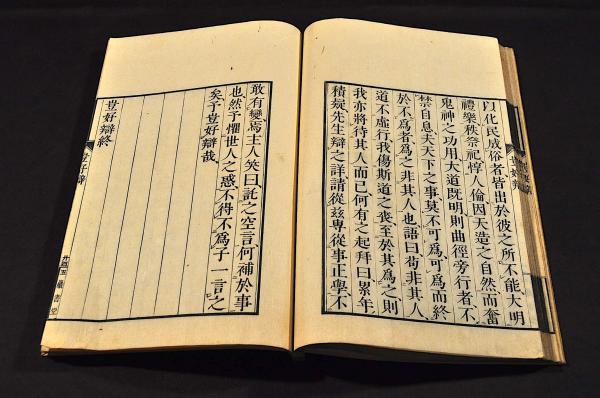 以化民成俗者皆出於彼之所不能大明
禮樂秩祭祀惇人倫因天造之自然而奮
鬼神之功用大道既明則曲徑旁行者不
禁自息夫天下之事莫不可爲可爲而終
於不爲者爲之非其人也語曰苟非其人
道不虛行我傷斯道之喪至於其爲之則
我亦將待其人而已何有之起拜曰累年
積疑先生辯之詳請從玆專從事正學不
敢有變焉主人笑曰託之空言何補於事
也然予懼世人之惑不得不爲子一言之
矣予豈好辯哉
豈好辯終
豈好辯